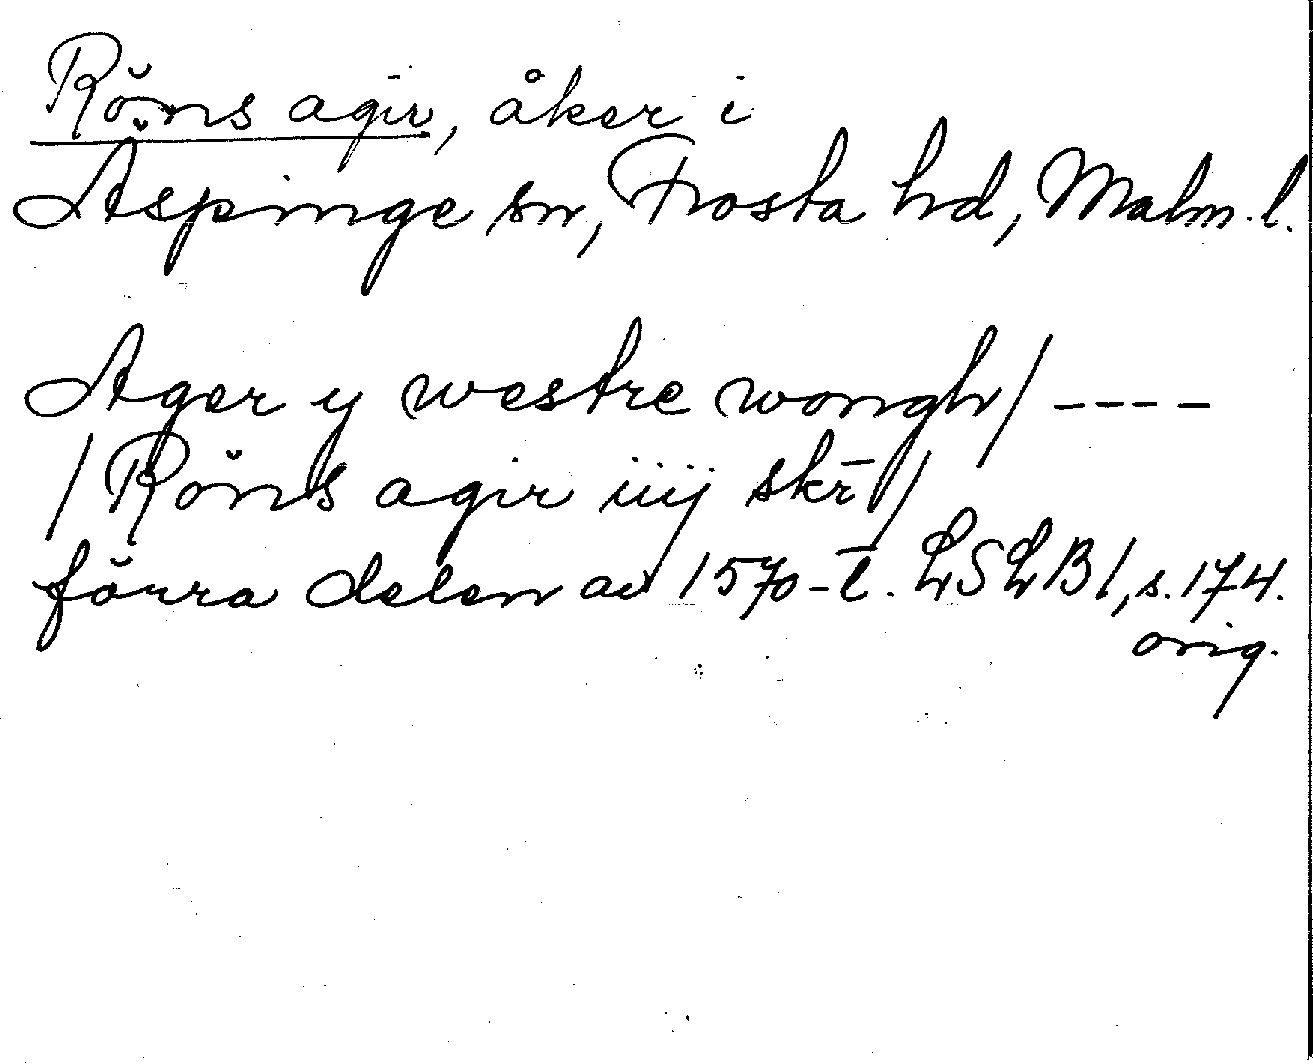 Röns agir, åker i
Aspinge sn, Frosta hd, Malm. l.
Ager y westre wongh/ ----
/Röns agir iiij skr̄/
förra delen av 1570-t. LSLB1, s. 174.
orig.